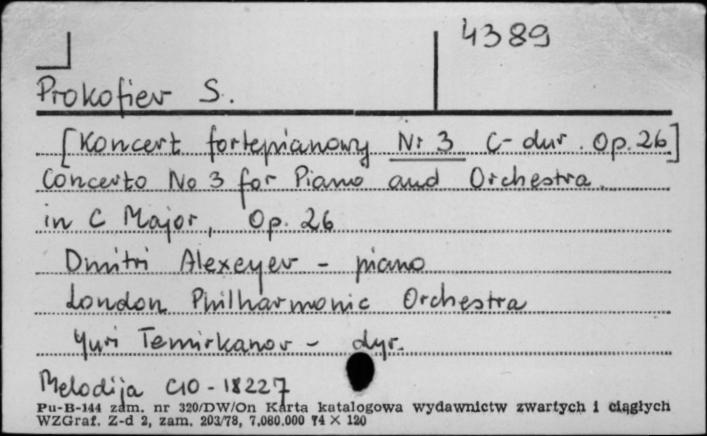 4389
Prokofiev S.
[Koncert fortepianowy Nr 3 C-dur. Op. 26]
Concerto No 3 for Piano and Orchestra
in C Major, Op. 26
Dmitri Alexeyev - piano
London Philharmonic Orchestra
Yuri Temirkanov - dyr.
Melodija C10-18227
Pu-B-144 zam. nr 320/DW/On Karta katalogowa wydawnictw zwartych i ciągłych
WZGraf. Z-d 2, zam. 203/78, 7,080.000 74 × 120